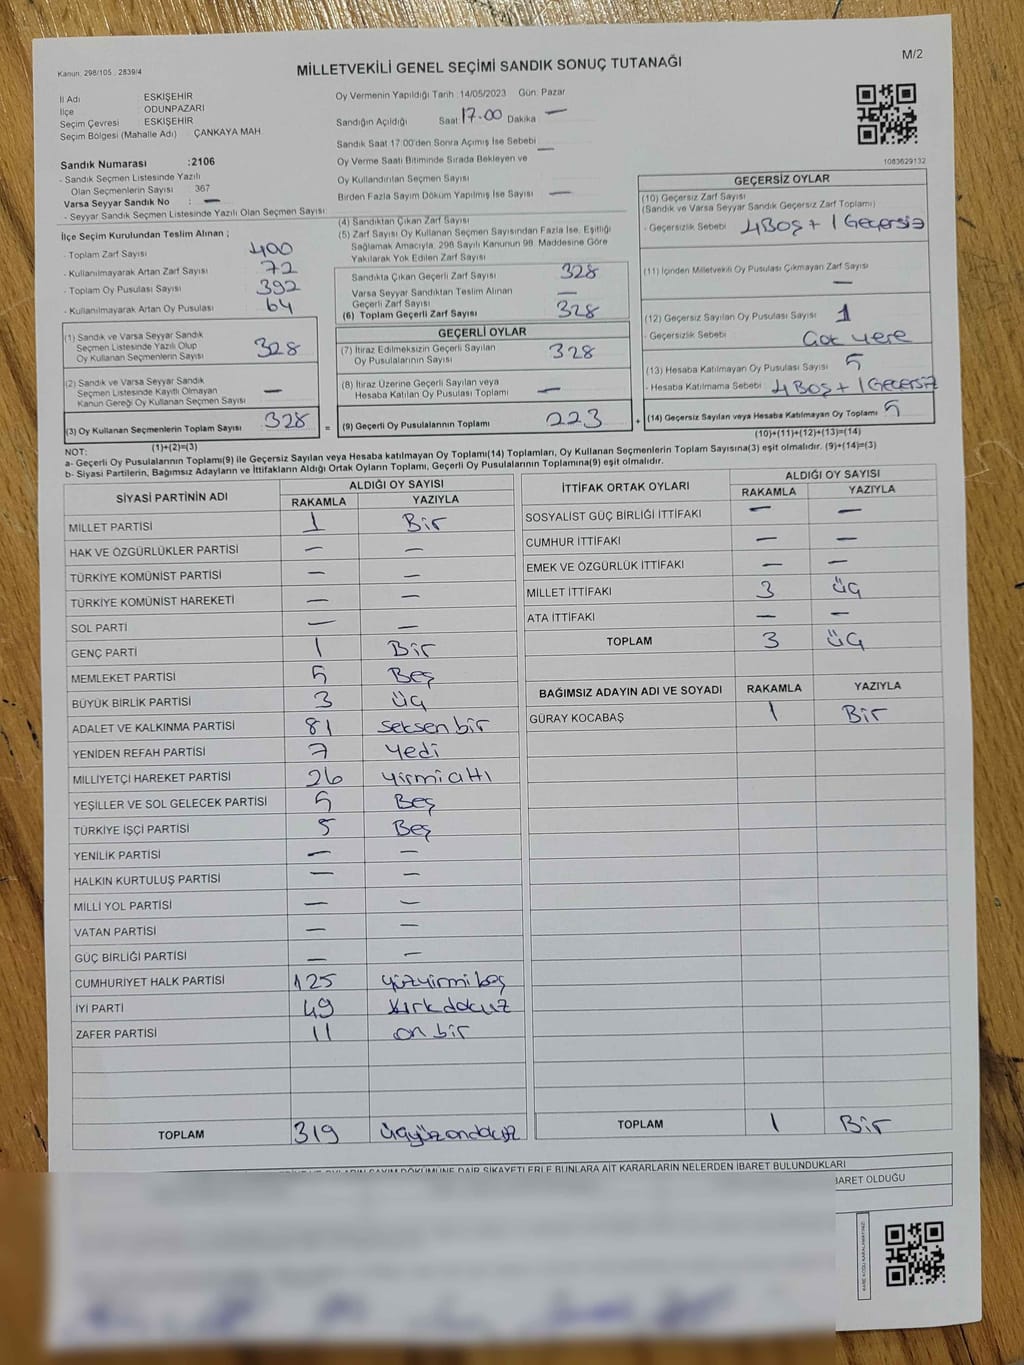 M/2
Kanun: 298/105 , 2839/4
MİLLETVEKİLİ GENEL SEÇİMİ SANDIK SONUÇ TUTANAĞI
İl Adı ESKİŞEHİR
İlçe ODUNPAZARI
Seçim Çevresi ESKİŞEHİR
Seçim Bölgesi (Mahalle Adı) ÇANKAYA MAH.
Oy Vermenin Yapıldığı Tarih :14/05/2023 Gün: Pazar
Sandığın Açıldığı Saat 17.00 Dakika —
Sandık Saat 17:00'den Sonra Açımış İse Sebebi —
Oy Verme Saati Bitiminde Sırada Bekleyen ve
Oy Kullandırılan Seçmen Sayısı
Birden Fazla Sayım Döküm Yapılmış İse Sayısı —
1083629132
Sandık Numarası :2106
- Sandık Seçmen Listesinde Yazılı
Olan Seçmenlerin Sayısı 367
Varsa Seyyar Sandık No : —
- Seyyar Sandık Seçmen Listesinde Yazılı Olan Seçmen Sayısı
İlçe Seçim Kurulundan Teslim Alınan ;
- Toplam Zarf Sayısı 400
- Kullanılmayarak Artan Zarf Sayısı 72
- Toplam Oy Pusulası Sayısı 392
- Kullanılmayarak Artan Oy Pusulası 64
(1) Sandık ve Varsa Seyyar Sandık
Seçmen Listesinde Yazılı Olup
Oy Kullanan Seçmenlerin Sayısı 328
(2) Sandık ve Varsa Seyyar Sandık
Seçmen Listesinde Kayıtlı Olmayan
Kanun Gereği Oy Kullanan Seçmen Sayısı —
(3) Oy Kullanan Seçmenlerin Toplam Sayısı 328
(1)+(2)=(3)
(4) Sandıktan Çıkan Zarf Sayısı
(5) Zarf Sayısı Oy Kullanan Seçmen Sayısından Fazla İse, Eşitliği
Sağlamak Amacıyla, 298 Sayılı Kanunun 98. Maddesine Göre
Yakılarak Yok Edilen Zarf Sayısı
Sandıkta Çıkan Geçerli Zarf Sayısı 328
Varsa Seyyar Sandıktan Teslim Alınan
Geçerli Zarf Sayısı —
(6) Toplam Geçerli Zarf Sayısı 328
GEÇERLİ OYLAR
(7) İtiraz Edilmeksizin Geçerli Sayılan
Oy Pusulalarının Sayısı 328
(8) İtiraz Üzerine Geçerli Sayılan veya
Hesaba Katılan Oy Pusulası Toplamı —
= (9) Geçerli Oy Pusulalarının Toplamı 223 +
GEÇERSİZ OYLAR
(10) Geçersiz Zarf Sayısı
(Sandık ve Varsa Seyyar Sandık Geçersiz Zarf Toplamı)
- Geçersizlik Sebebi 4 Boş + 1 Geçersiz
(11) İçinden Milletvekili Oy Pusulası Çıkmayan Zarf Sayısı
—
(12) Geçersiz Sayılan Oy Pusulası Sayısı 1
- Geçersizlik Sebebi Çok yere
(13) Hesaba Katılmayan Oy Pusulası Sayısı 5
- Hesaba Katılmama Sebebi 4 Boş + 1 Geçersiz
(14) Geçersiz Sayılan veya Hesaba Katılmayan Oy Toplamı 5
(10)+(11)+(12)+(13)=(14)
NOT:
a- Geçerli Oy Pusulalarının Toplamı(9) ile Geçersiz Sayılan veya Hesaba katılmayan Oy Toplamı(14) Toplamları, Oy Kullanan Seçmenlerin Toplam Sayısına(3) eşit olmalıdır. (9)+(14)=(3)
b- Siyasi Partilerin, Bağımsız Adayların ve İttifakların Aldığı Ortak Oyların Toplamı, Geçerli Oy Pusulalarının Toplamına(9) eşit olmalıdır.
SİYASİ PARTİNİN ADI ALDIĞI OY SAYISI
RAKAMLA YAZIYLA
MİLLET PARTİSİ 1 Bir
HAK VE ÖZGÜRLÜKLER PARTİSİ — —
TÜRKİYE KOMÜNİST PARTİSİ — —
TÜRKİYE KOMÜNİST HAREKETİ — —
SOL PARTİ — —
GENÇ PARTİ 1 Bir
MEMLEKET PARTİSİ 5 Beş
BÜYÜK BİRLİK PARTİSİ 3 üç
ADALET VE KALKINMA PARTİSİ 81 seksen bir
YENİDEN REFAH PARTİSİ 7 yedi
MİLLİYETÇİ HAREKET PARTİSİ 26 yirmi altı
YEŞİLLER VE SOL GELECEK PARTİSİ 5 Beş
TÜRKİYE İŞÇİ PARTİSİ 5 Beş
YENİLİK PARTİSİ — —
HALKIN KURTULUŞ PARTİSİ — —
MİLLİ YOL PARTİSİ — —
VATAN PARTİSİ — —
GÜÇ BİRLİĞİ PARTİSİ — —
CUMHURİYET HALK PARTİSİ 125 yüzyirmi beş
İYİ PARTİ 49 kırk dokuz
ZAFER PARTİSİ 11 on bir
TOPLAM 319 üçyüz ondokuz
İTTİFAK ORTAK OYLARI ALDIĞI OY SAYISI
RAKAMLA YAZIYLA
SOSYALİST GÜÇ BİRLİĞİ İTTİFAKI — —
CUMHUR İTTİFAKI — —
EMEK VE ÖZGÜRLÜK İTTİFAKI — —
MİLLET İTTİFAKI 3 üç
ATA İTTİFAKI — —
TOPLAM 3 üç
BAĞIMSIZ ADAYIN ADI VE SOYADI RAKAMLA YAZIYLA
GÜRAY KOCABAŞ 1 Bir
TOPLAM 1 Bir
SAYIM DÖKÜMÜNE DAİR ŞİKAYETLERLE BUNLARA AİT KARARLARIN NELERDEN İBARET BULUNDUKLARI
BARET OLDUĞU